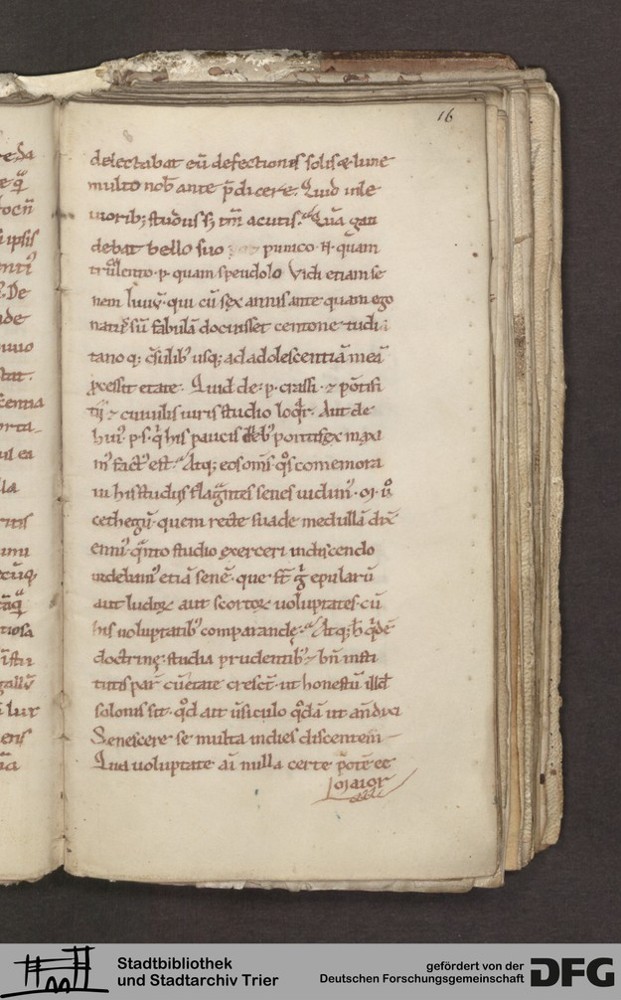 16
delectabat eū defectiones solis & lune
multo nob ante p̄dicere. Quid in le
uiorib; studiis s; tm̄ acutis. Quā gau
debat bello suo punico .N. quam
truculento .p. quam speudolo Vidi etiam se
nem liuiū. qui cū sex annis ante quam ego
natus sū fabulā docuisset centone tudi
tano q; c̄sulib' usq; ad adolescentiā meā
p̱cessit etate. Quid de .p. crassi. & pōtifi
tii & ciuilis iuris studio loq̄r. Aut de
hui' p.s. q̄ his paucis dieb' pontifex maxi
m' fact' est. Atq; eos om̄s q̊s comemora
ui his studiis flagrātes senes uidim'. M. ů
cethegū. quem recte suade medullā dix̄
enni' q̄nto studio exerceri in discendo
uidebam' etiā senē. que st̄ g̊ epularū
aut ludoꝝ aut scortoꝝ uoluptates. cū
his uoluptatib' comparande. Atq; h' q̊dē
doctrine: studia prudentib' & bn̄ insti
tutis par̄ cū etate cresct̄. ut honestū illd̄
solonis sit. q̊d ait ūsiculo q̊dā ut an̄ dixi
Senescere se multa in dies discentem̄
Qua uoluptate ai nulla certe potē ee
Maior
Stadtbibliothek
und Stadtarchiv Trier
gefördert von der
Deutschen Forschungsgemeinschaft
DFG